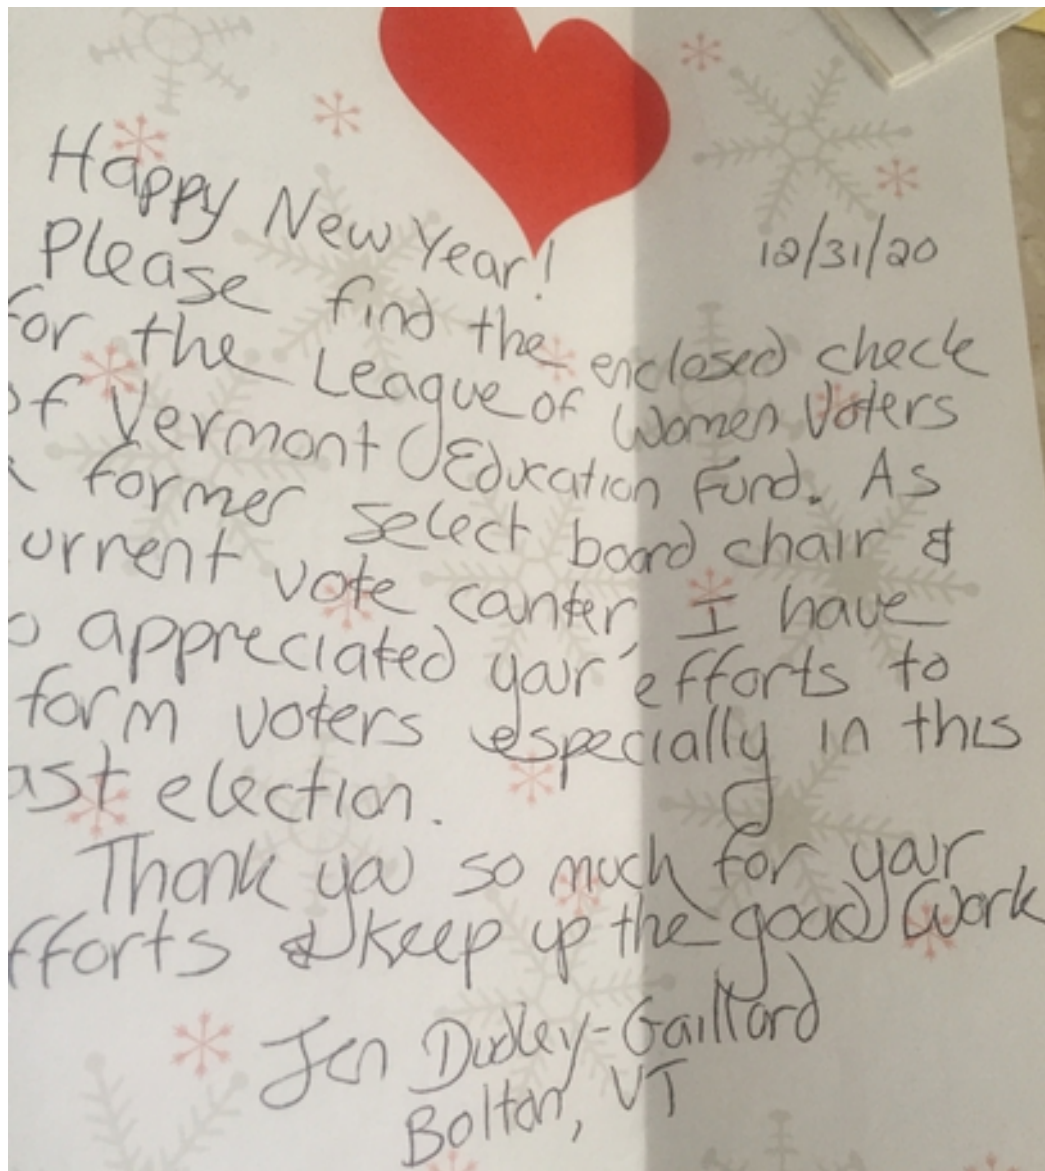 Happy New Year!
12/31/20
Please find the enclosed check
for the League of Women Voters
of Vermont Education Fund. As
former select board chair &
urrent vote canter, I have
o appreciated your efforts to
form voters especially in this
ast election.
Thank you so much for your
fforts & keep up the good work
Jen Dudley-Gaillard
Bolton, VT